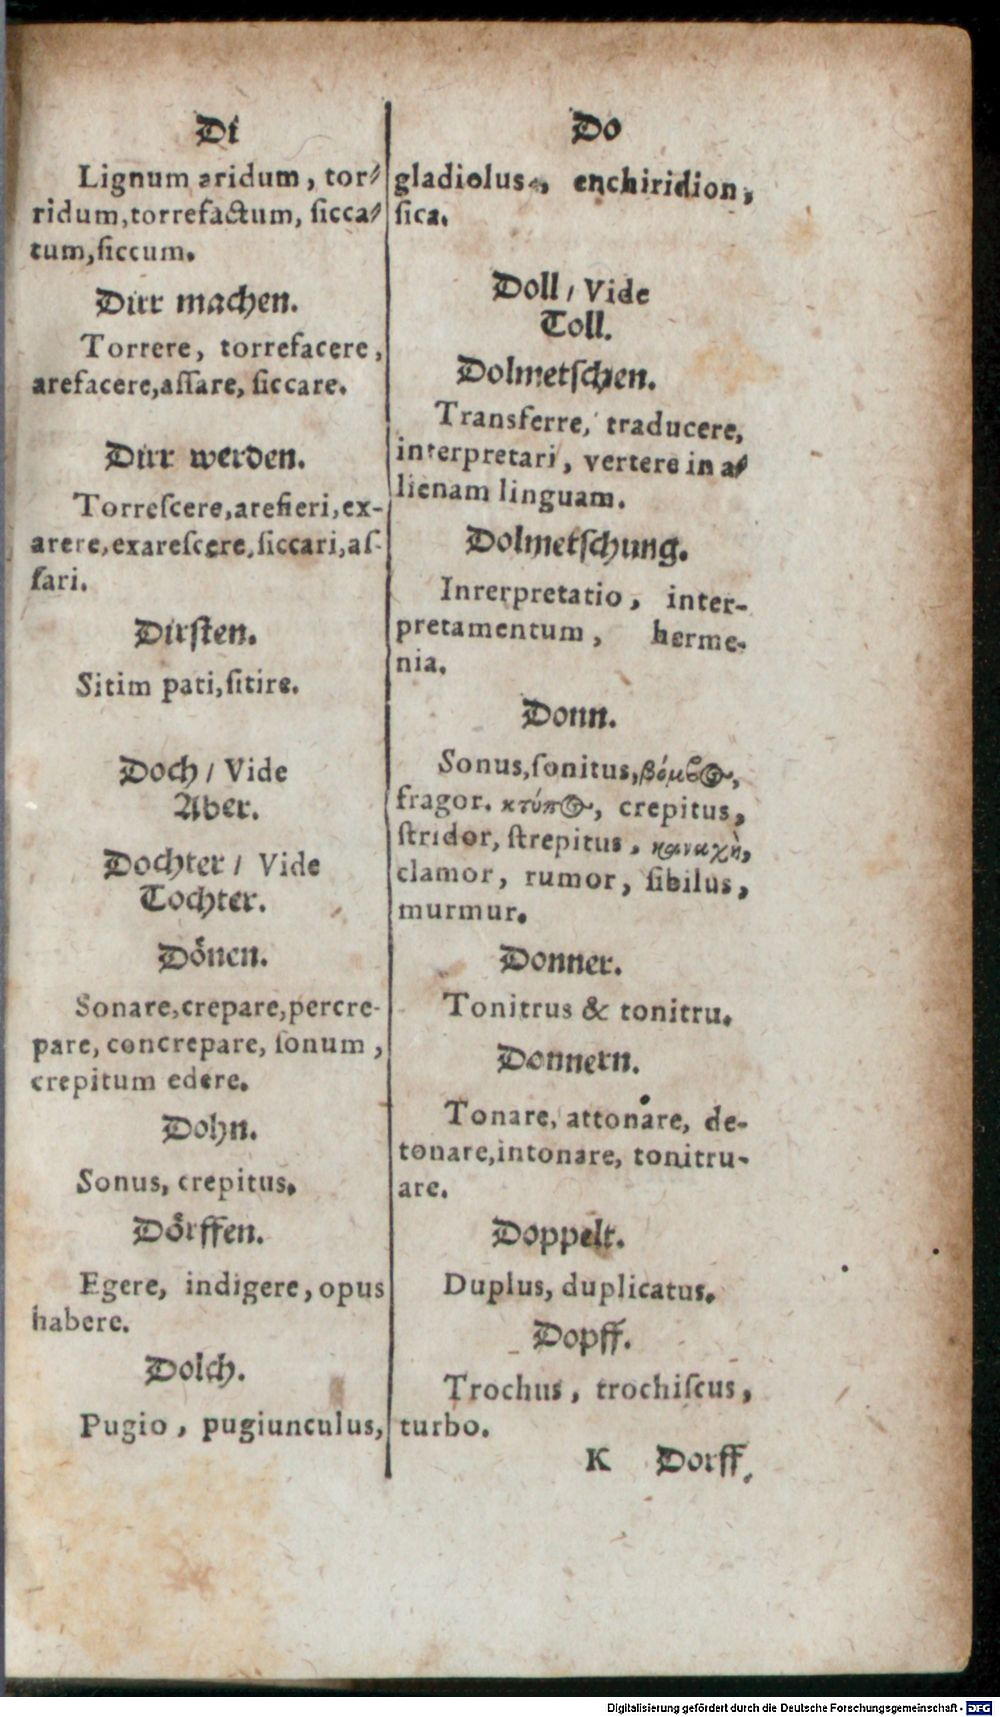 Di
Lignum aridum, tor⸗
ridum,torrefactum, ſicca⸗
tum,ſiccum.
Dirr machen.
Torrere, torrefacere,
arefacere,aſſare, ſiccare.
Dirr werden.
Torreſcere,arefieri,ex-
arere,exareſcere,ſiccari,aſ-
ſari.
Dirſten.
Sitim pati,ſitire.
Doch / Vide
Aber.
Dochter / Vide
Tochter.
Doͤnen.
Sonare,crepare,percre-
pare, concrepare, ſonum,
crepitum edere.
Dohn.
Sonus, crepitus.
Doͤrffen.
Egere, indigere, opus
habere.
Dolch.
Pugio, pugiunculus,
Do
gladiolus, enchiridion,
ſica.
Doll / Vide
Toll.
Dolmetſchen.
Transferre, traducere,
interpretari, vertere in a⸗
lienam linguam.
Dolmetſchung.
Inrerpretatio, inter-
pretamentum, herme-
nia.
Donn.
Sonus,ſonitus,
fragor. κτύπ⊙, crepitus,
ſtridor, ſtrepitus, καναχὴ,
clamor, rumor, ſibilus,
murmur.
Donner.
Tonitrus & tonitru.
Donnern.
Tonare, attonare, de-
tonare,intonare, tonitru-
are.
Doppelt.
Duplus, duplicatus.
Dopff.
Trochus, trochiſcus,
turbo.
K Dorff.
Digitalisierung gefördert durch die Deutsche Forschungsgemeinschaft - DFG